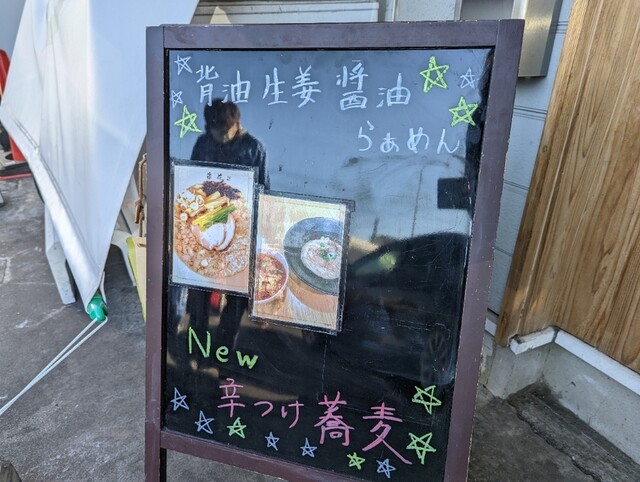 背油生姜醤油
らぁめん
New
辛つけ蕎麦